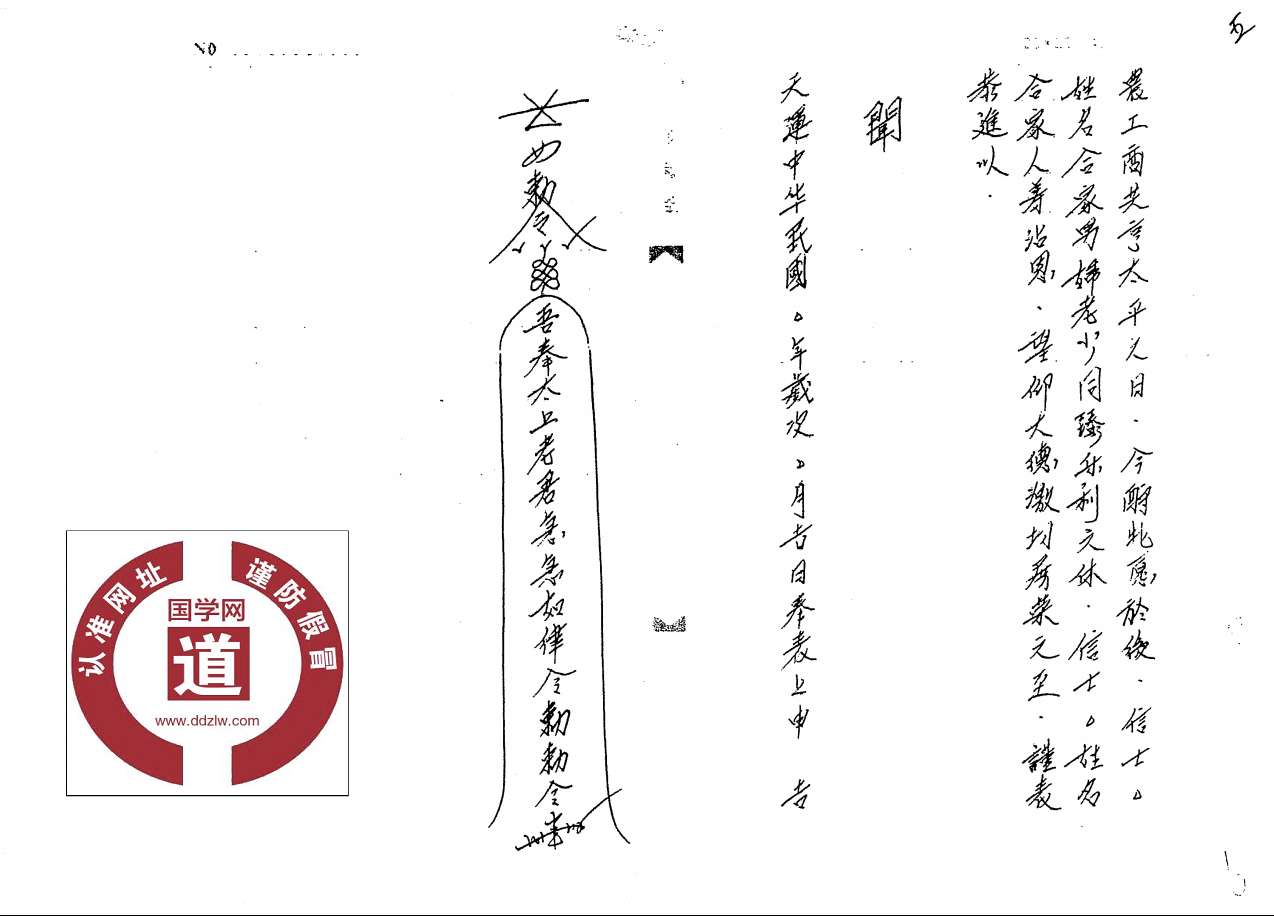 農工商共亨太平之日.今酧此恩於後.信士。△
姓名合家男婦老少同臻乐利之休.信士。姓名
合家人等沾恩.望仰大德激切屏荣之至.謹表
恭進以.
聞
天運中华民國。年歲次。月吉日奉表上申 吉
勅令
吾奉太上老君急急如律令勅勅令
NO
认准网址 谨防假冒
国学网
道
www.ddzlw.com